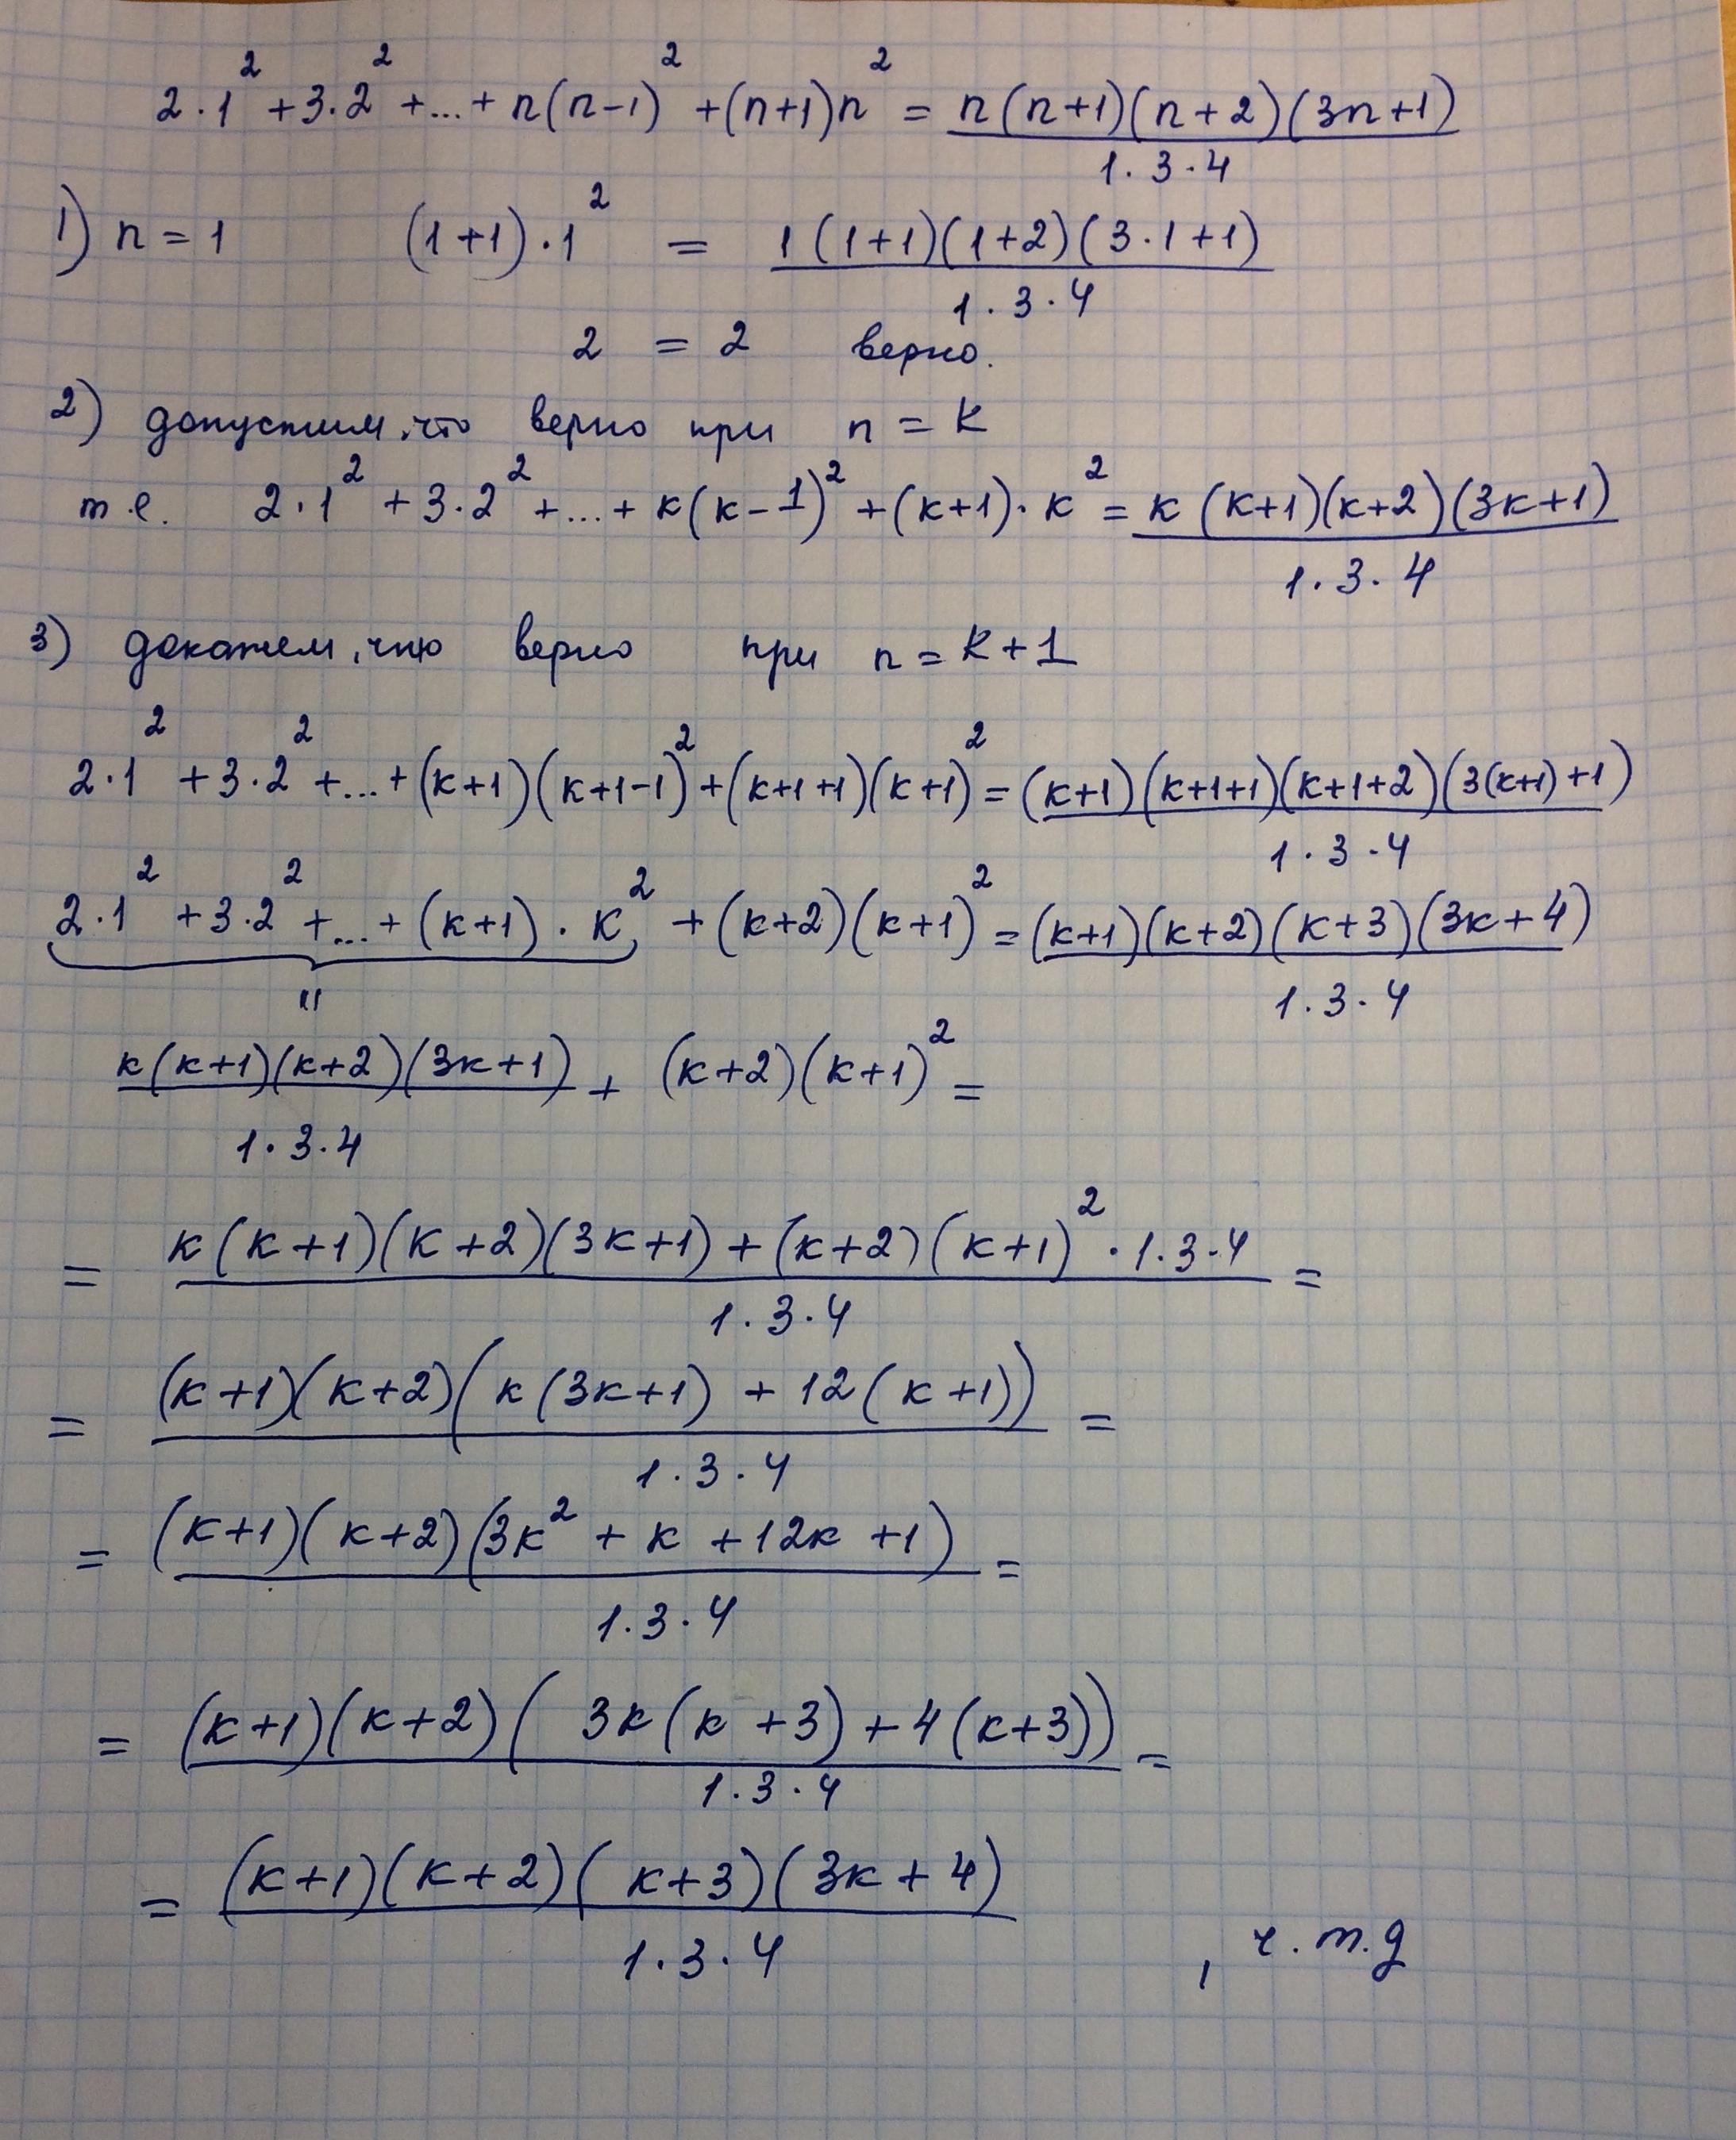 2·1² + 3·2² + ... + n(n-1)² + (n+1)n² = n(n+1)(n+2)(3n+1)
1·3·4
1) n = 1 (1+1)·1² = 1(1+1)(1+2)(3·1+1)
1·3·4
2 = 2 верно.
2) допустим, что верно при n = k
т.е. 2·1² + 3·2² + ... + k(k-1)² + (k+1)·k² = k(k+1)(k+2)(3k+1)
1·3·4
3) докажем, что верно при n = k+1
2·1² + 3·2² + ... + (k+1)(k+1-1)² + (k+1+1)(k+1)² = (k+1)(k+1+1)(k+1+2)(3(k+1)+1)
1·3·4
2·1² + 3·2² + ... + (k+1)·k² + (k+2)(k+1)² = (k+1)(k+2)(k+3)(3k+4)
1·3·4
k(k+1)(k+2)(3k+1) + (k+2)(k+1)² =
1·3·4
= k(k+1)(k+2)(3k+1) + (k+2)(k+1)²·1·3·4 =
1·3·4
= (k+1)(k+2)(k(3k+1) + 12(k+1)) =
1·3·4
= (k+1)(k+2)(3k² + k + 12k + 1) =
1·3·4
= (k+1)(k+2)(3k(k+3) + 4(k+3)) =
1·3·4
= (k+1)(k+2)(k+3)(3k+4)
1·3·4
, ч.т.д